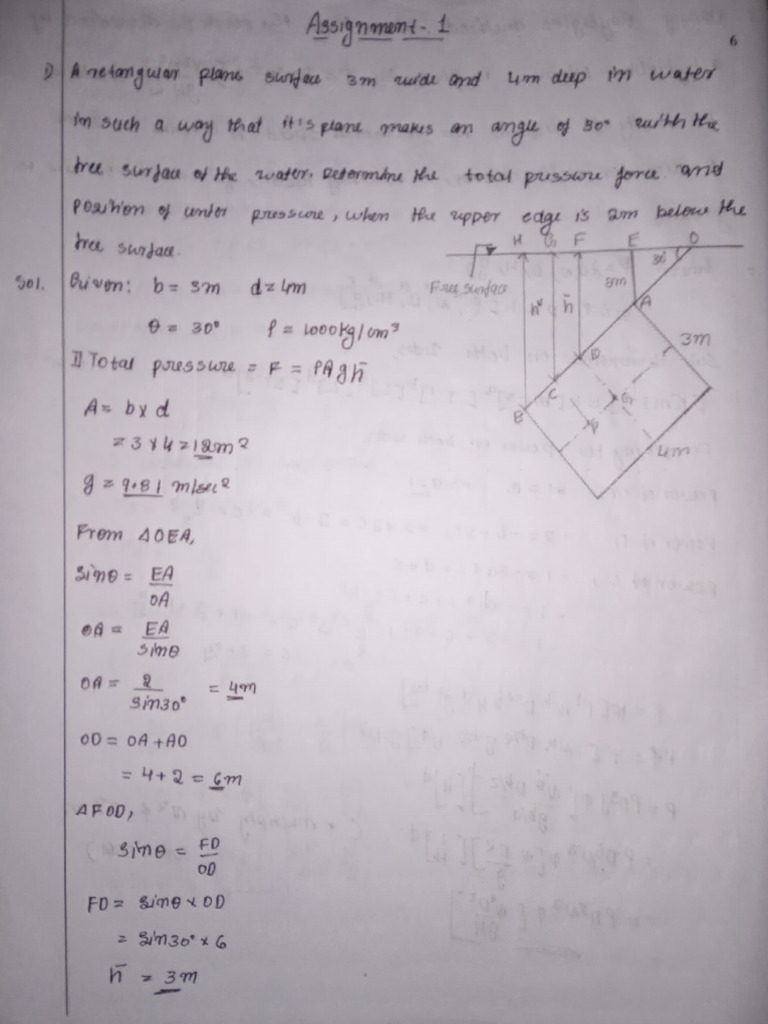 Assignment - 1
6
1) A retangular plane surface 3m wide and 4m deep in water
in such a way that it's plane makes an angle of 30° with the
free surface of the water. Determine the total pressure force and
position of center pressure, when the upper edge is 2m below the
free surface.
H G1 F E O
30
Free surface
h* h̄
A
3m
D
C
B
G
P
4m
Sol. Given: b = 3m d = 4m
θ = 30° ρ = 1000kg/cm³
I) Total pressure = F = ρAgh̄
A = b x d
= 3 x 4 = 12m²
g = 9.81 m/sec²
From ΔOEA,
sinθ = EA/OA
OA = EA/sinθ
OA = 2/sin30° = 4m
OD = OA + AD
= 4 + 2 = 6m
ΔFOD,
sinθ = FD/OD
FD = sinθ x OD
= sin30° x 6
h̄ = 3m